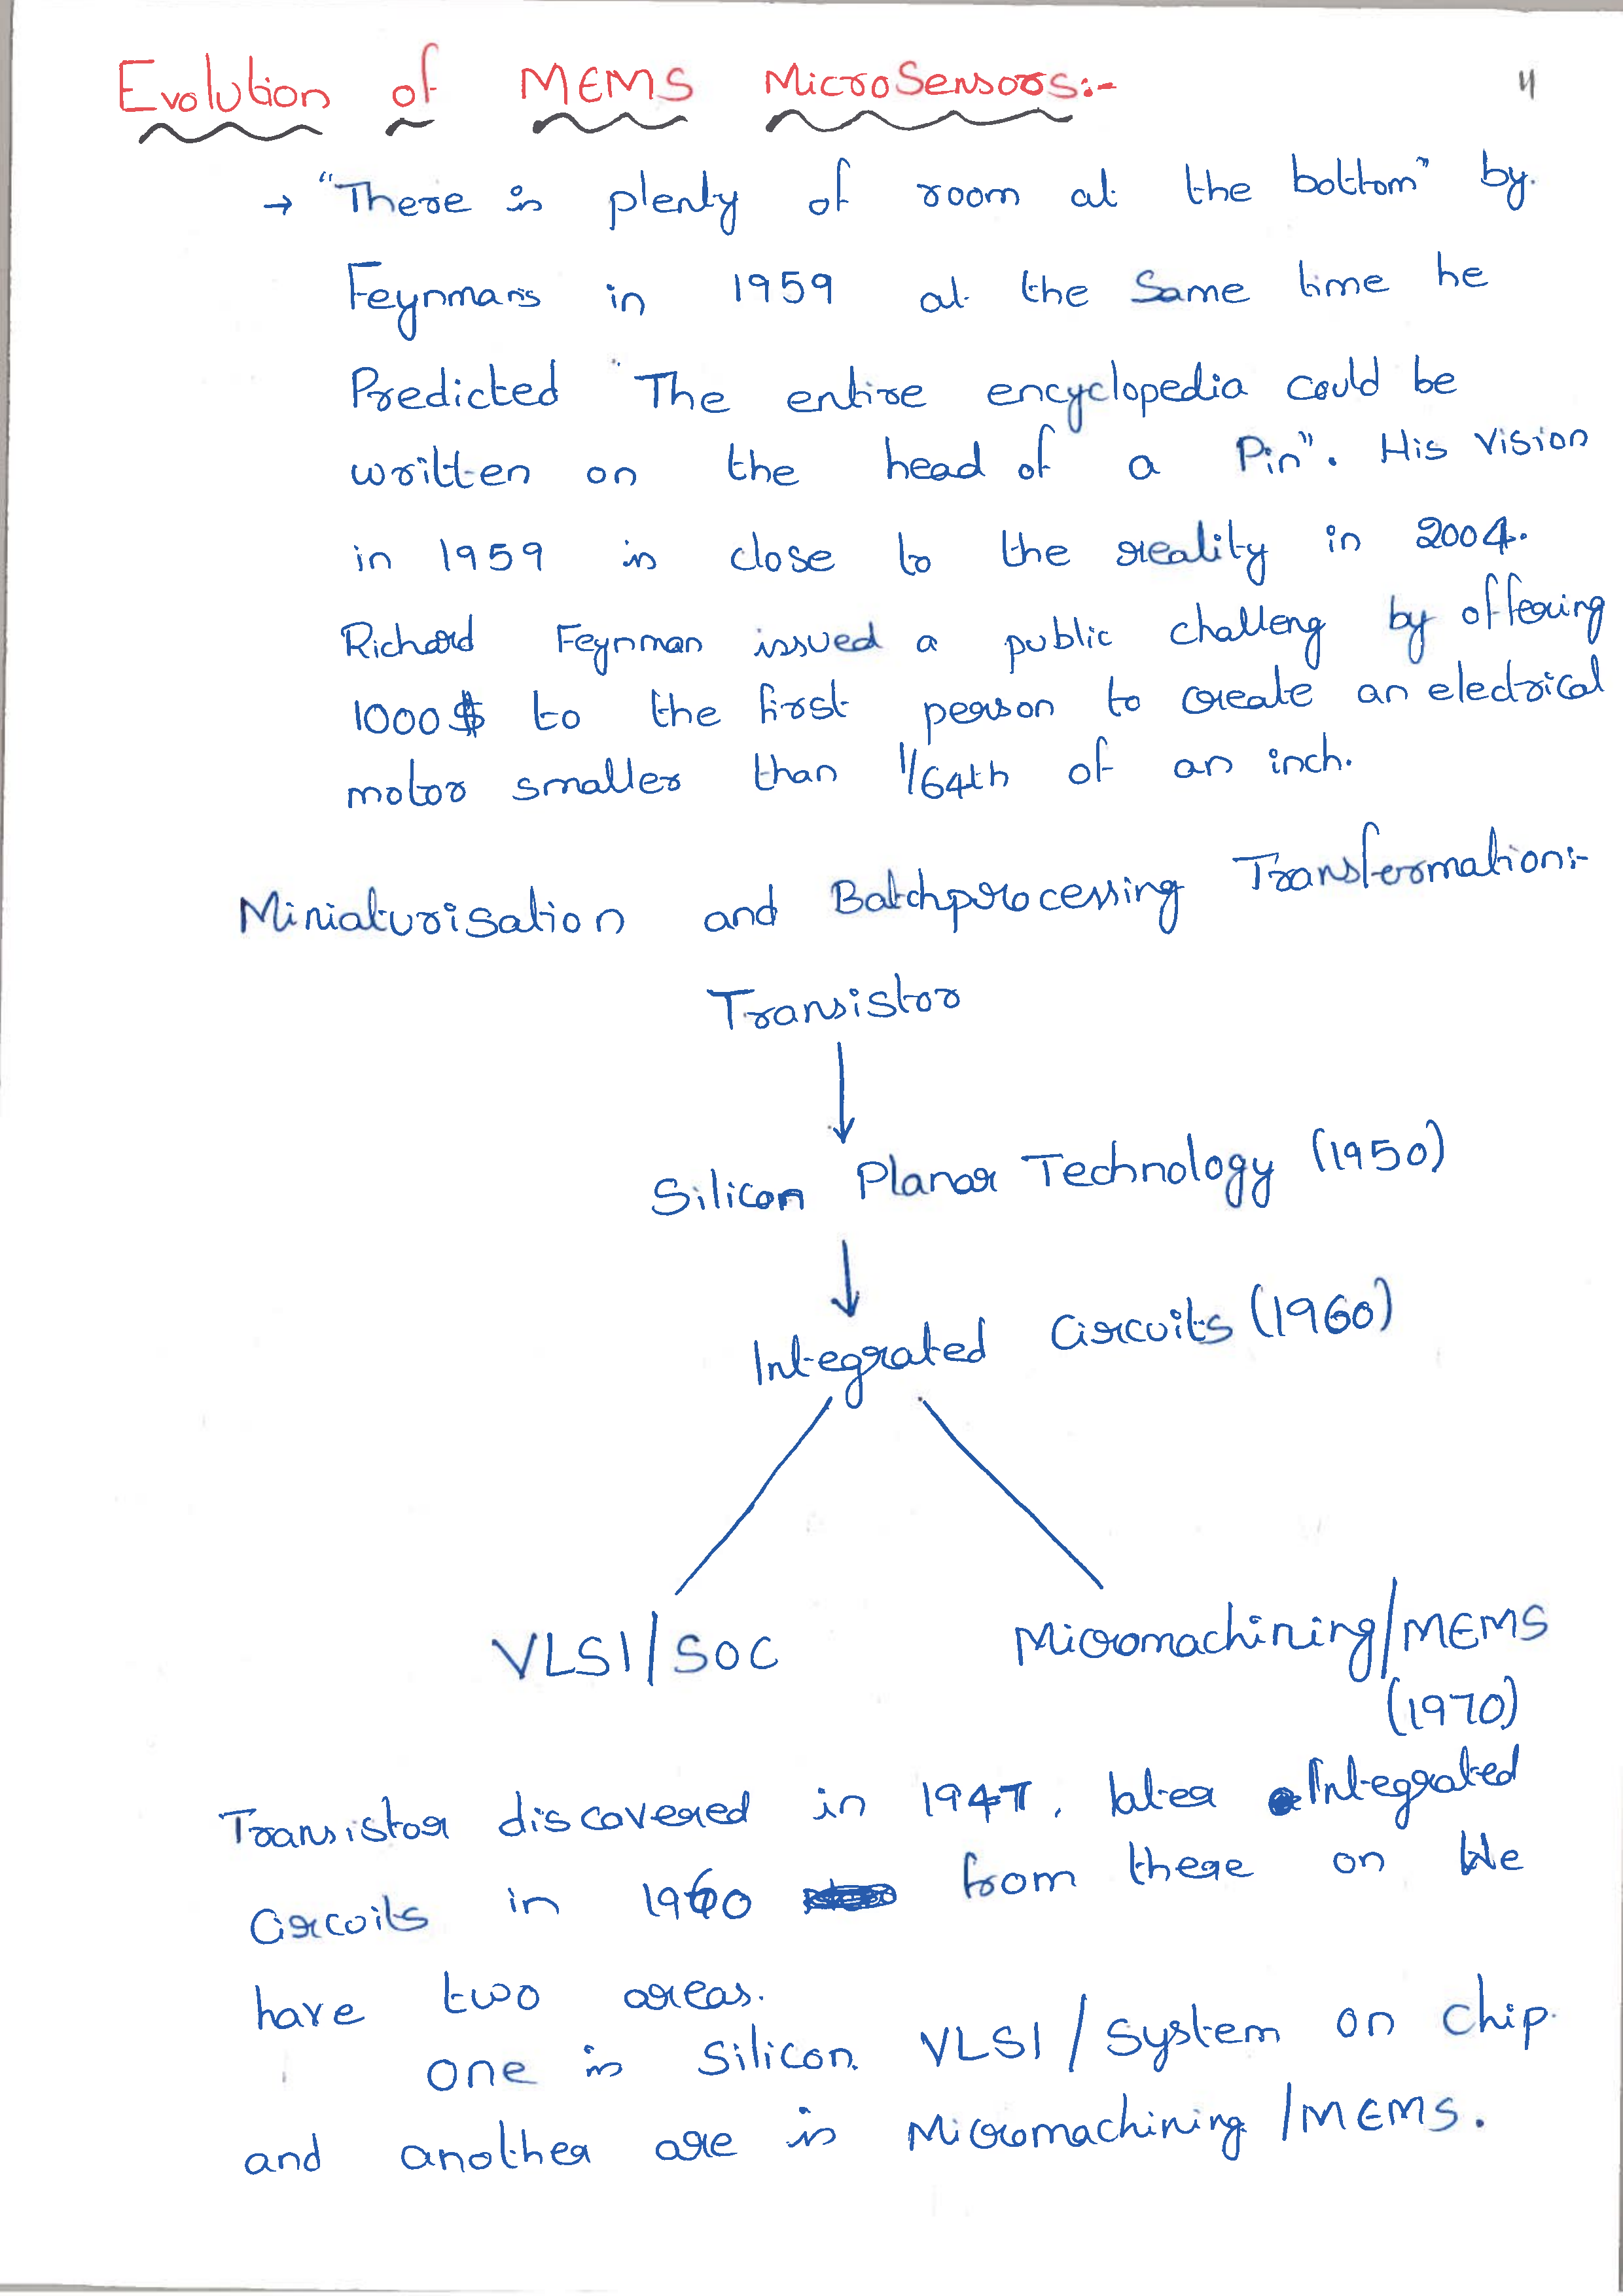 Evolution of MEMS MicroSensors:-
4
→ "There is plenty of room at the bottom" by.
Feynmans in 1959 at the Same time he
Predicted "The entire encyclopedia could be
written on the head of a Pin". His Vision
in 1959 is close to the reality in 2004.
Richard Feynman issued a public challeng by offering
1000$ to the first person to create an electrical
motor smaller than 1/64th of an inch.
Miniaturisation and Batchprocessing Transformation:-
Transistor
Silicon Planar Technology (1950)
Integrated Circuits (1960)
VLSI/SOC Micromachining/MEMS
(1970)
Transistor discovered in 1947, later Integrated
Circuits in 1960 from there on We
have two areas.
one is Silicon VLSI / System on chip.
and another are is Micromachining /MEMS.